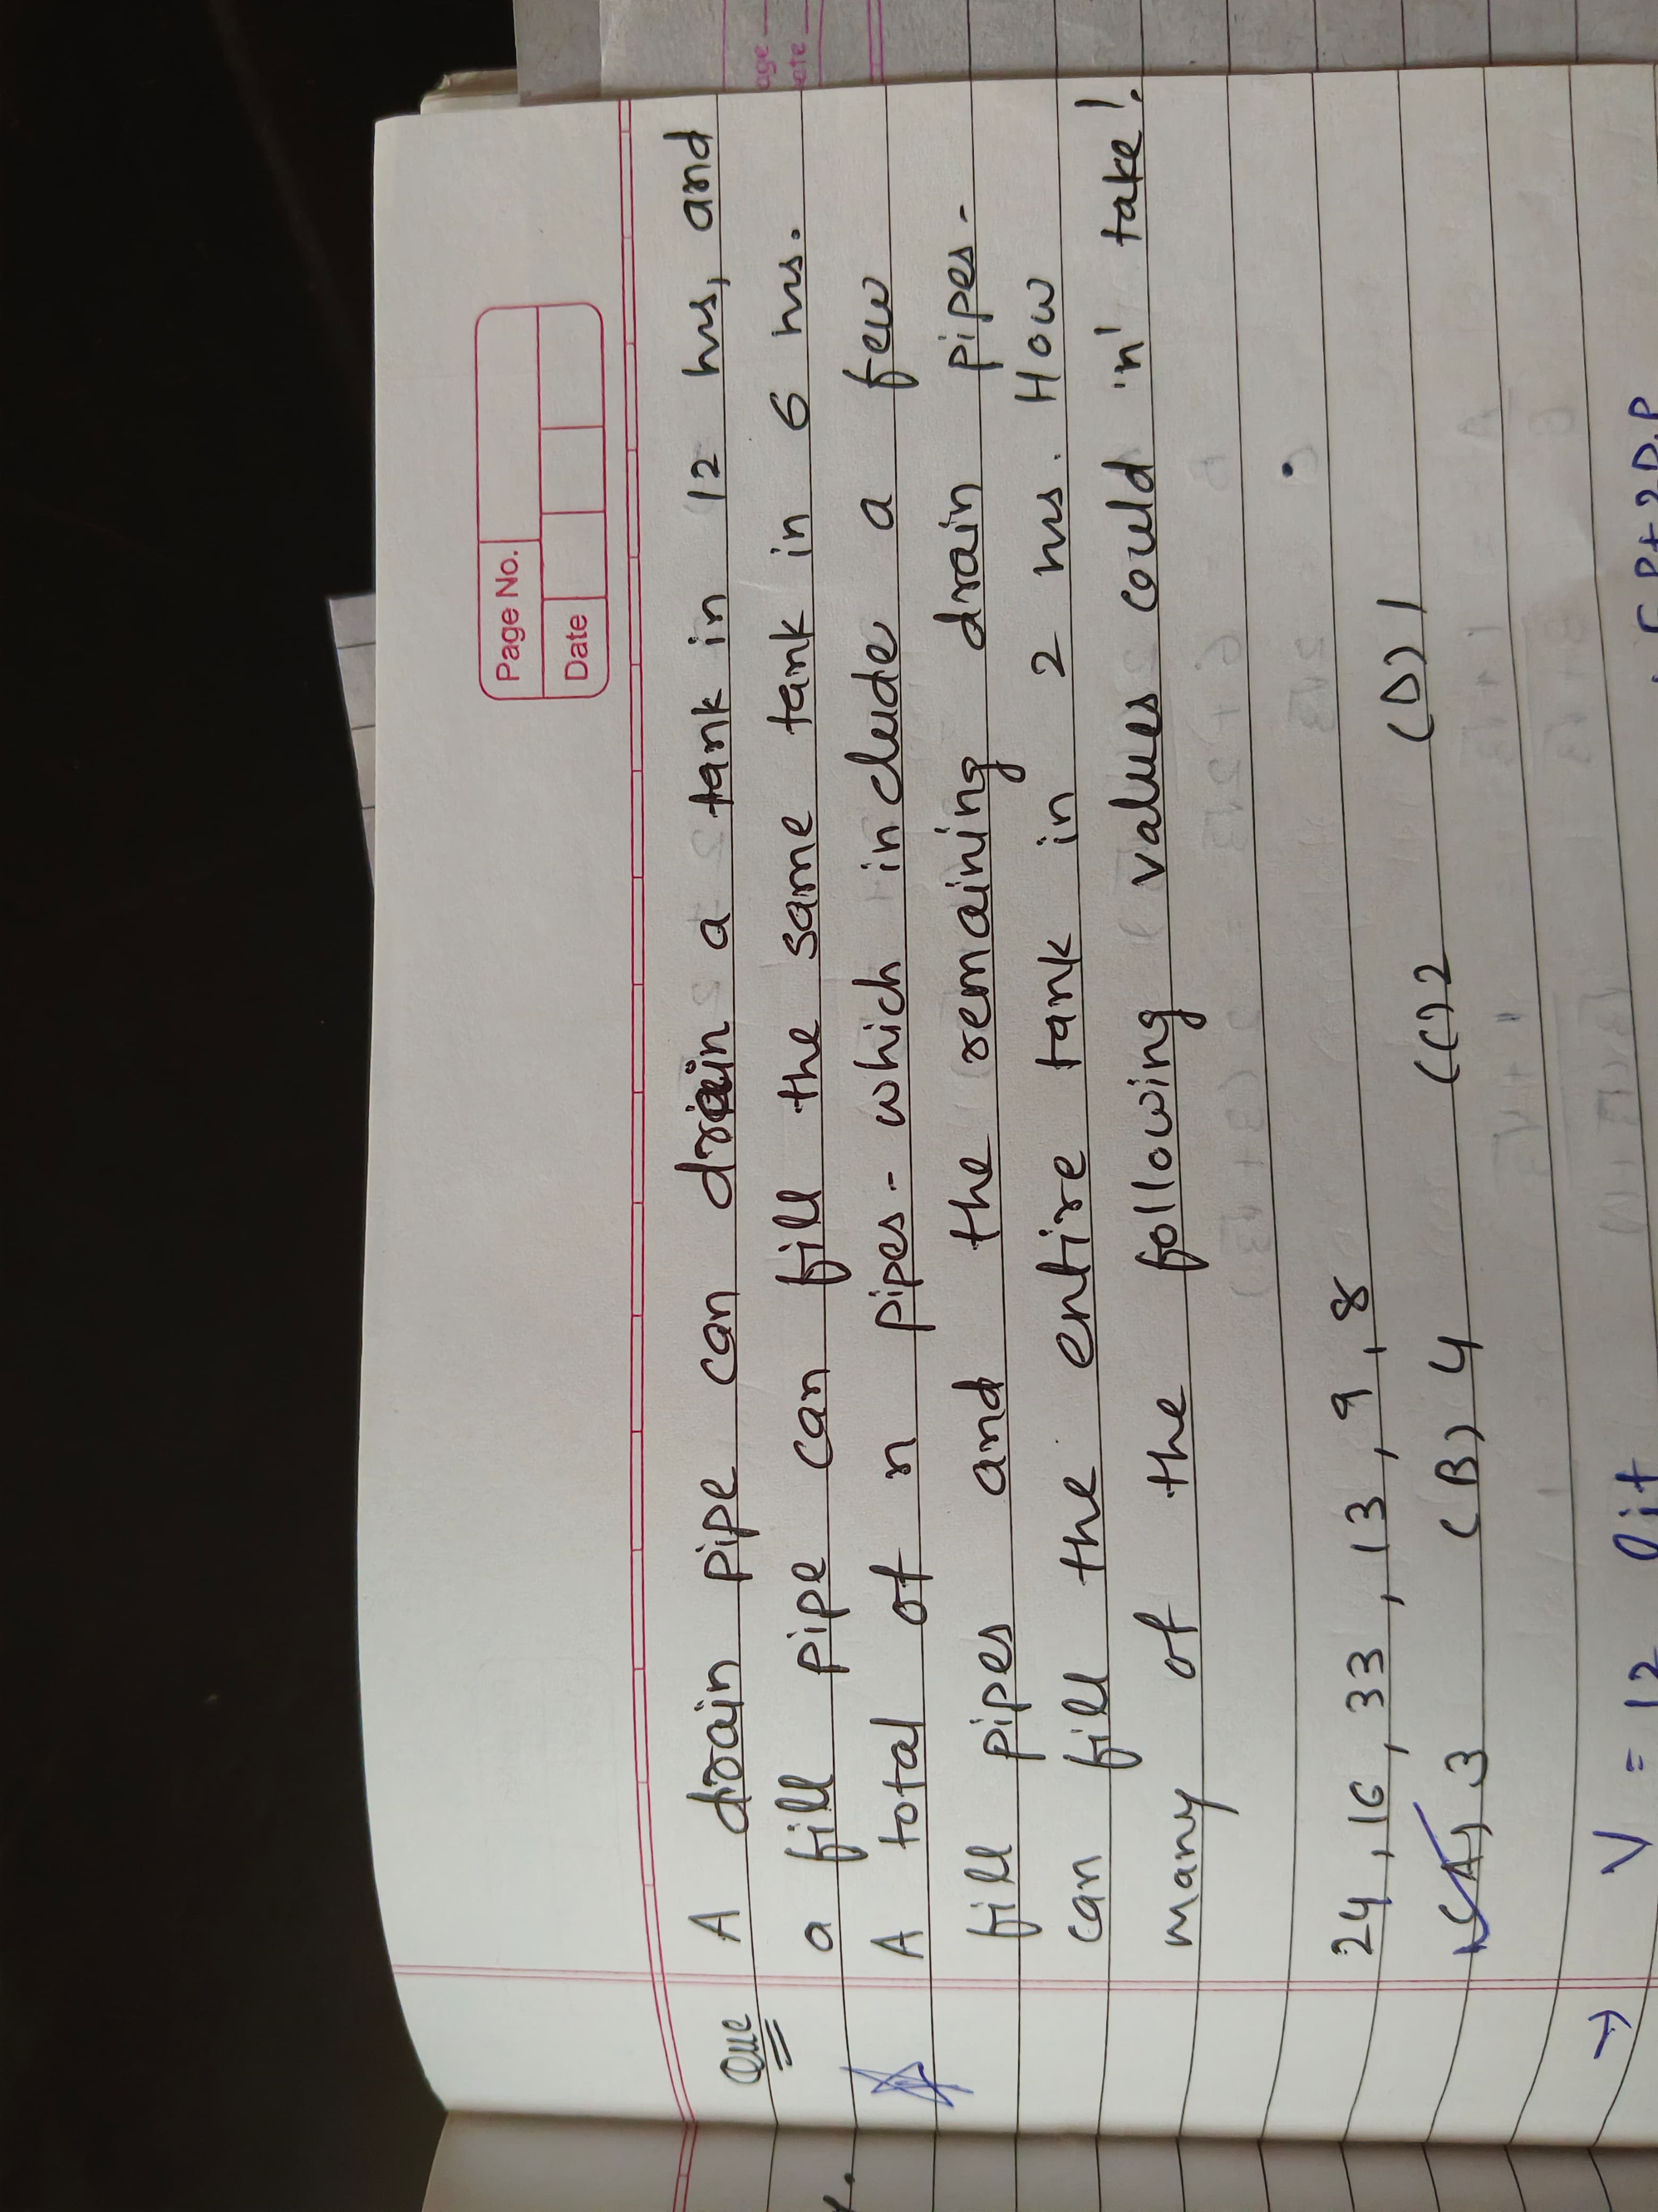 age
ate
Page No.
Date
Que A drain pipe can drain a tank in 12 hrs, and
a fill pipe can fill the same tank in 6 hrs.
A total of n pipes - which include a few
fill pipes and the remaining drain pipes -
can fill the entire tank in 2 hrs. How
many of the following values could 'n' take!
24, 16, 33, 13, 9, 8
(A) 3 (B) 4 (C) 2 (D) 1
→ V = 12 lit